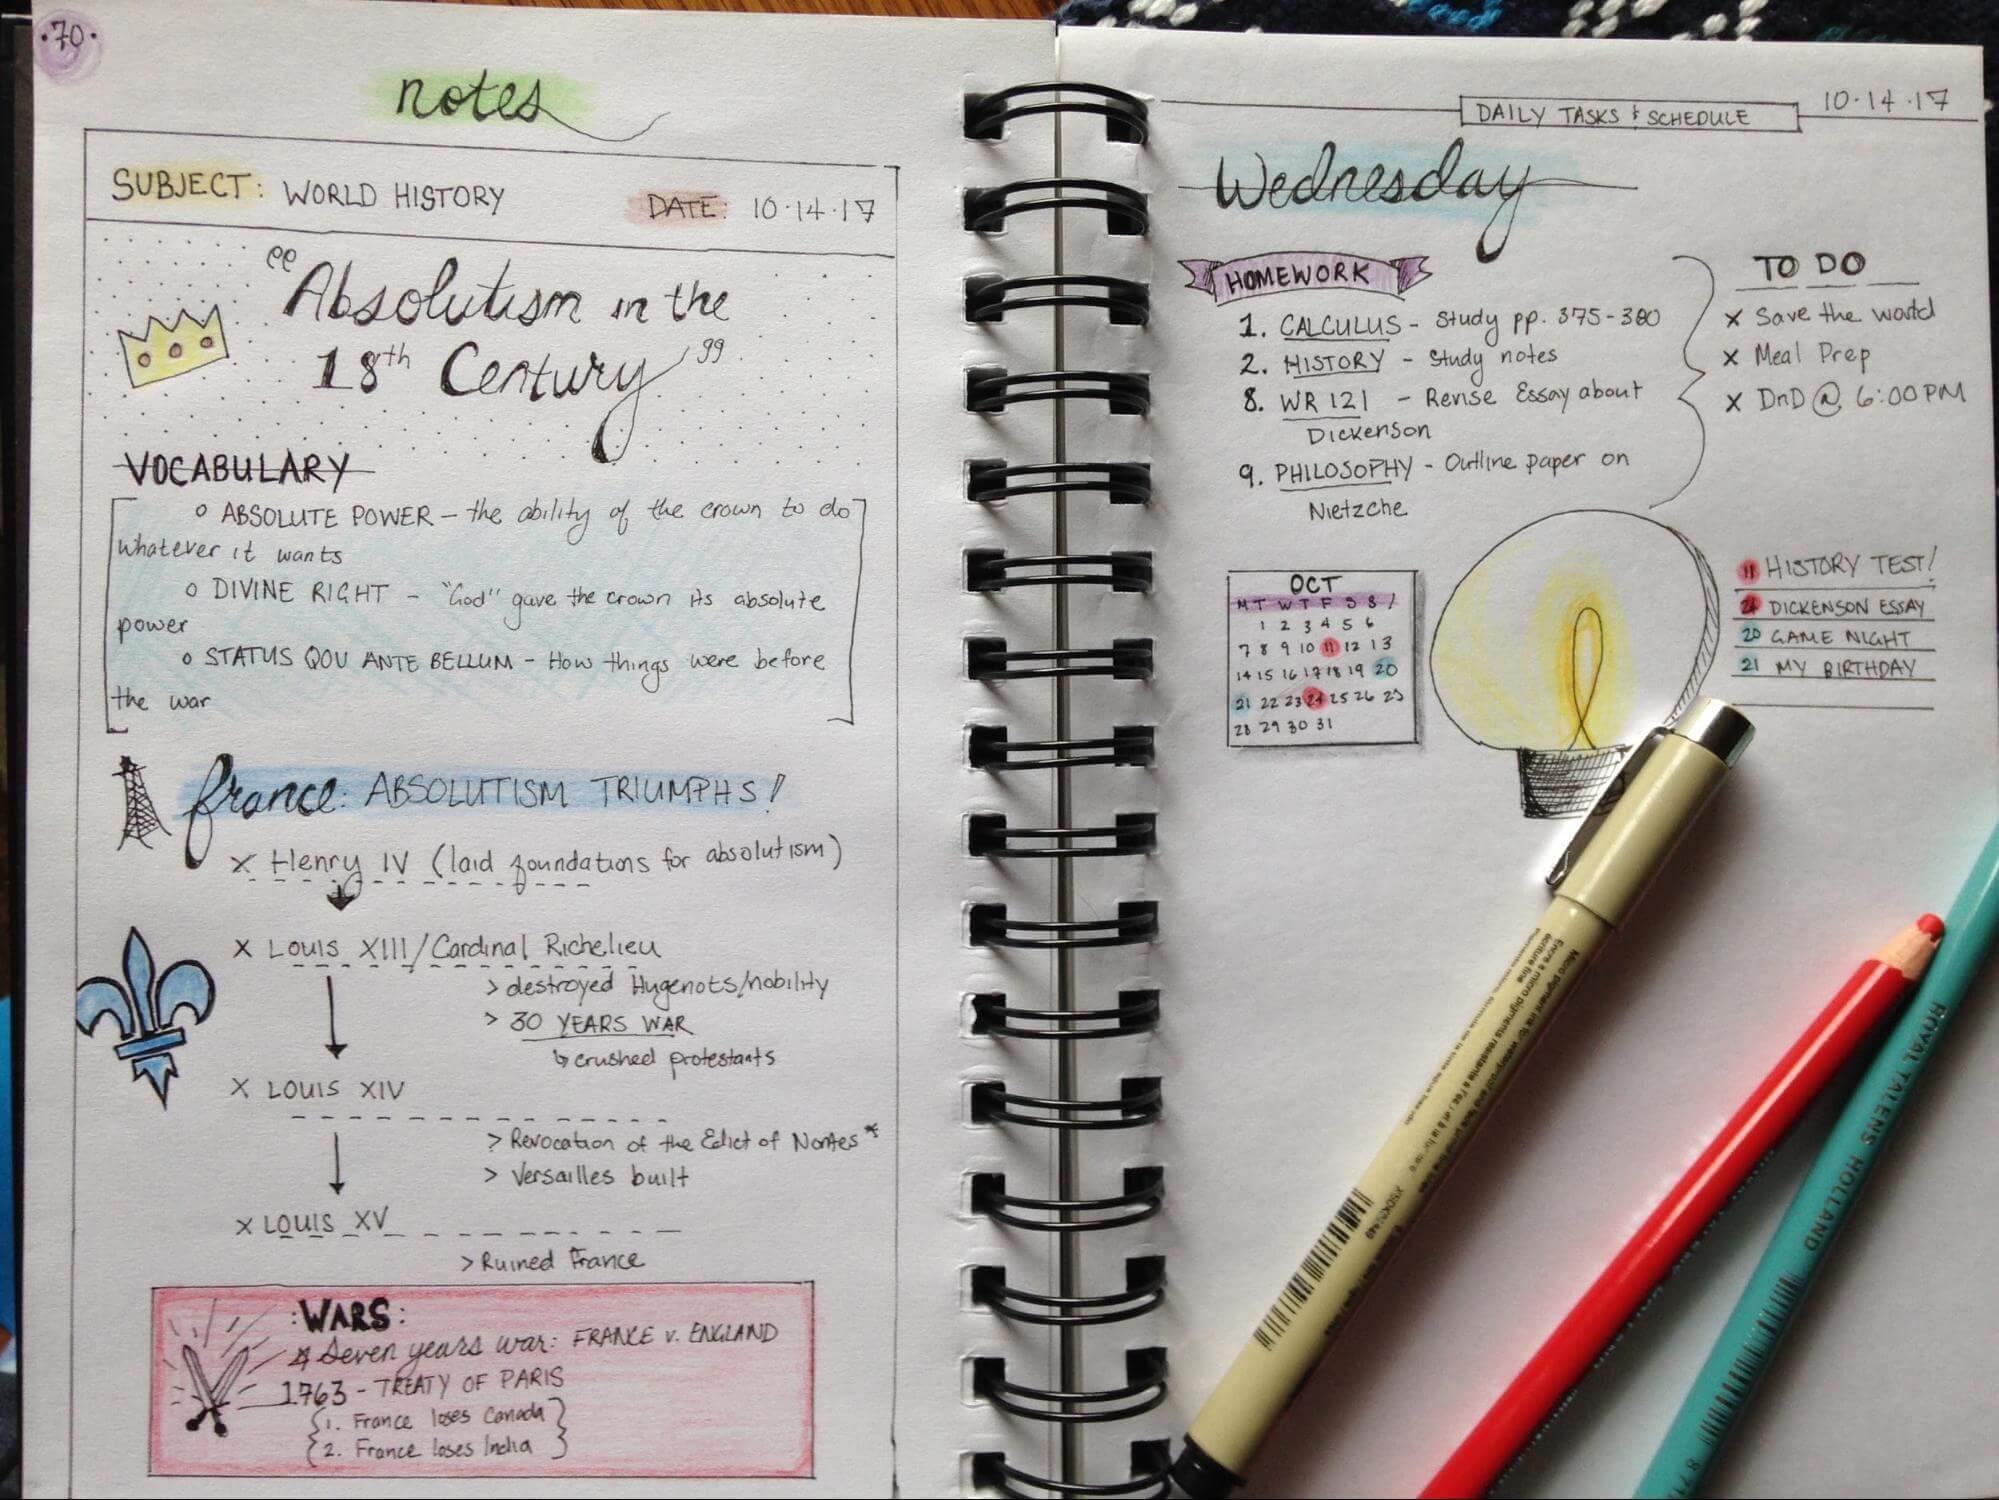 ·70·
notes
SUBJECT: WORLD HISTORY
DATE: 10·14·17
"Absolutism in the
18th Century"
VOCABULARY
o ABSOLUTE POWER - the ability of the crown to do
whatever it wants
o DIVINE RIGHT - "God" gave the crown its absolute
power
o STATUS QOU ANTE BELLUM - How things were before
the war
france: ABSOLUTISM TRIUMPHS!
x Henry IV (laid foundations for absolutism)
x Louis XIII/Cardinal Richelieu
> destroyed Hugenots/nobility
> 30 YEARS WAR
↳ crushed protestants
x LOUIS XIV
> Revocation of the Edict of Nantes*
> Versailles built
x LOUIS XV
> Ruined France
:WARS:
Seven years war: FRANCE v. ENGLAND
1763 - TREATY OF PARIS
{1. France loses Canada}
{2. France loses India}
DAILY TASKS & SCHEDULE
10·14·17
Wednesday
HOMEWORK
1. CALCULUS - Study pp. 375-380
2. HISTORY - Study notes
8. WR 121 - Revise Essay about
Dickenson
9. PHILOSOPHY - Outline paper on
Nietzche
TO DO
x Save the world
x Meal Prep
x DnD @ 6:00PM
OCT
M T W T F S S /
1 2 3 4 5 6
7 8 9 10 11 12 13
14 15 16 17 18 19 20
21 22 23 24 25 26 25
28 29 30 31
11 HISTORY TEST!
24 DICKENSON ESSAY
20 GAME NIGHT
21 MY BIRTHDAY
ROYAL TALENS HOLLAND